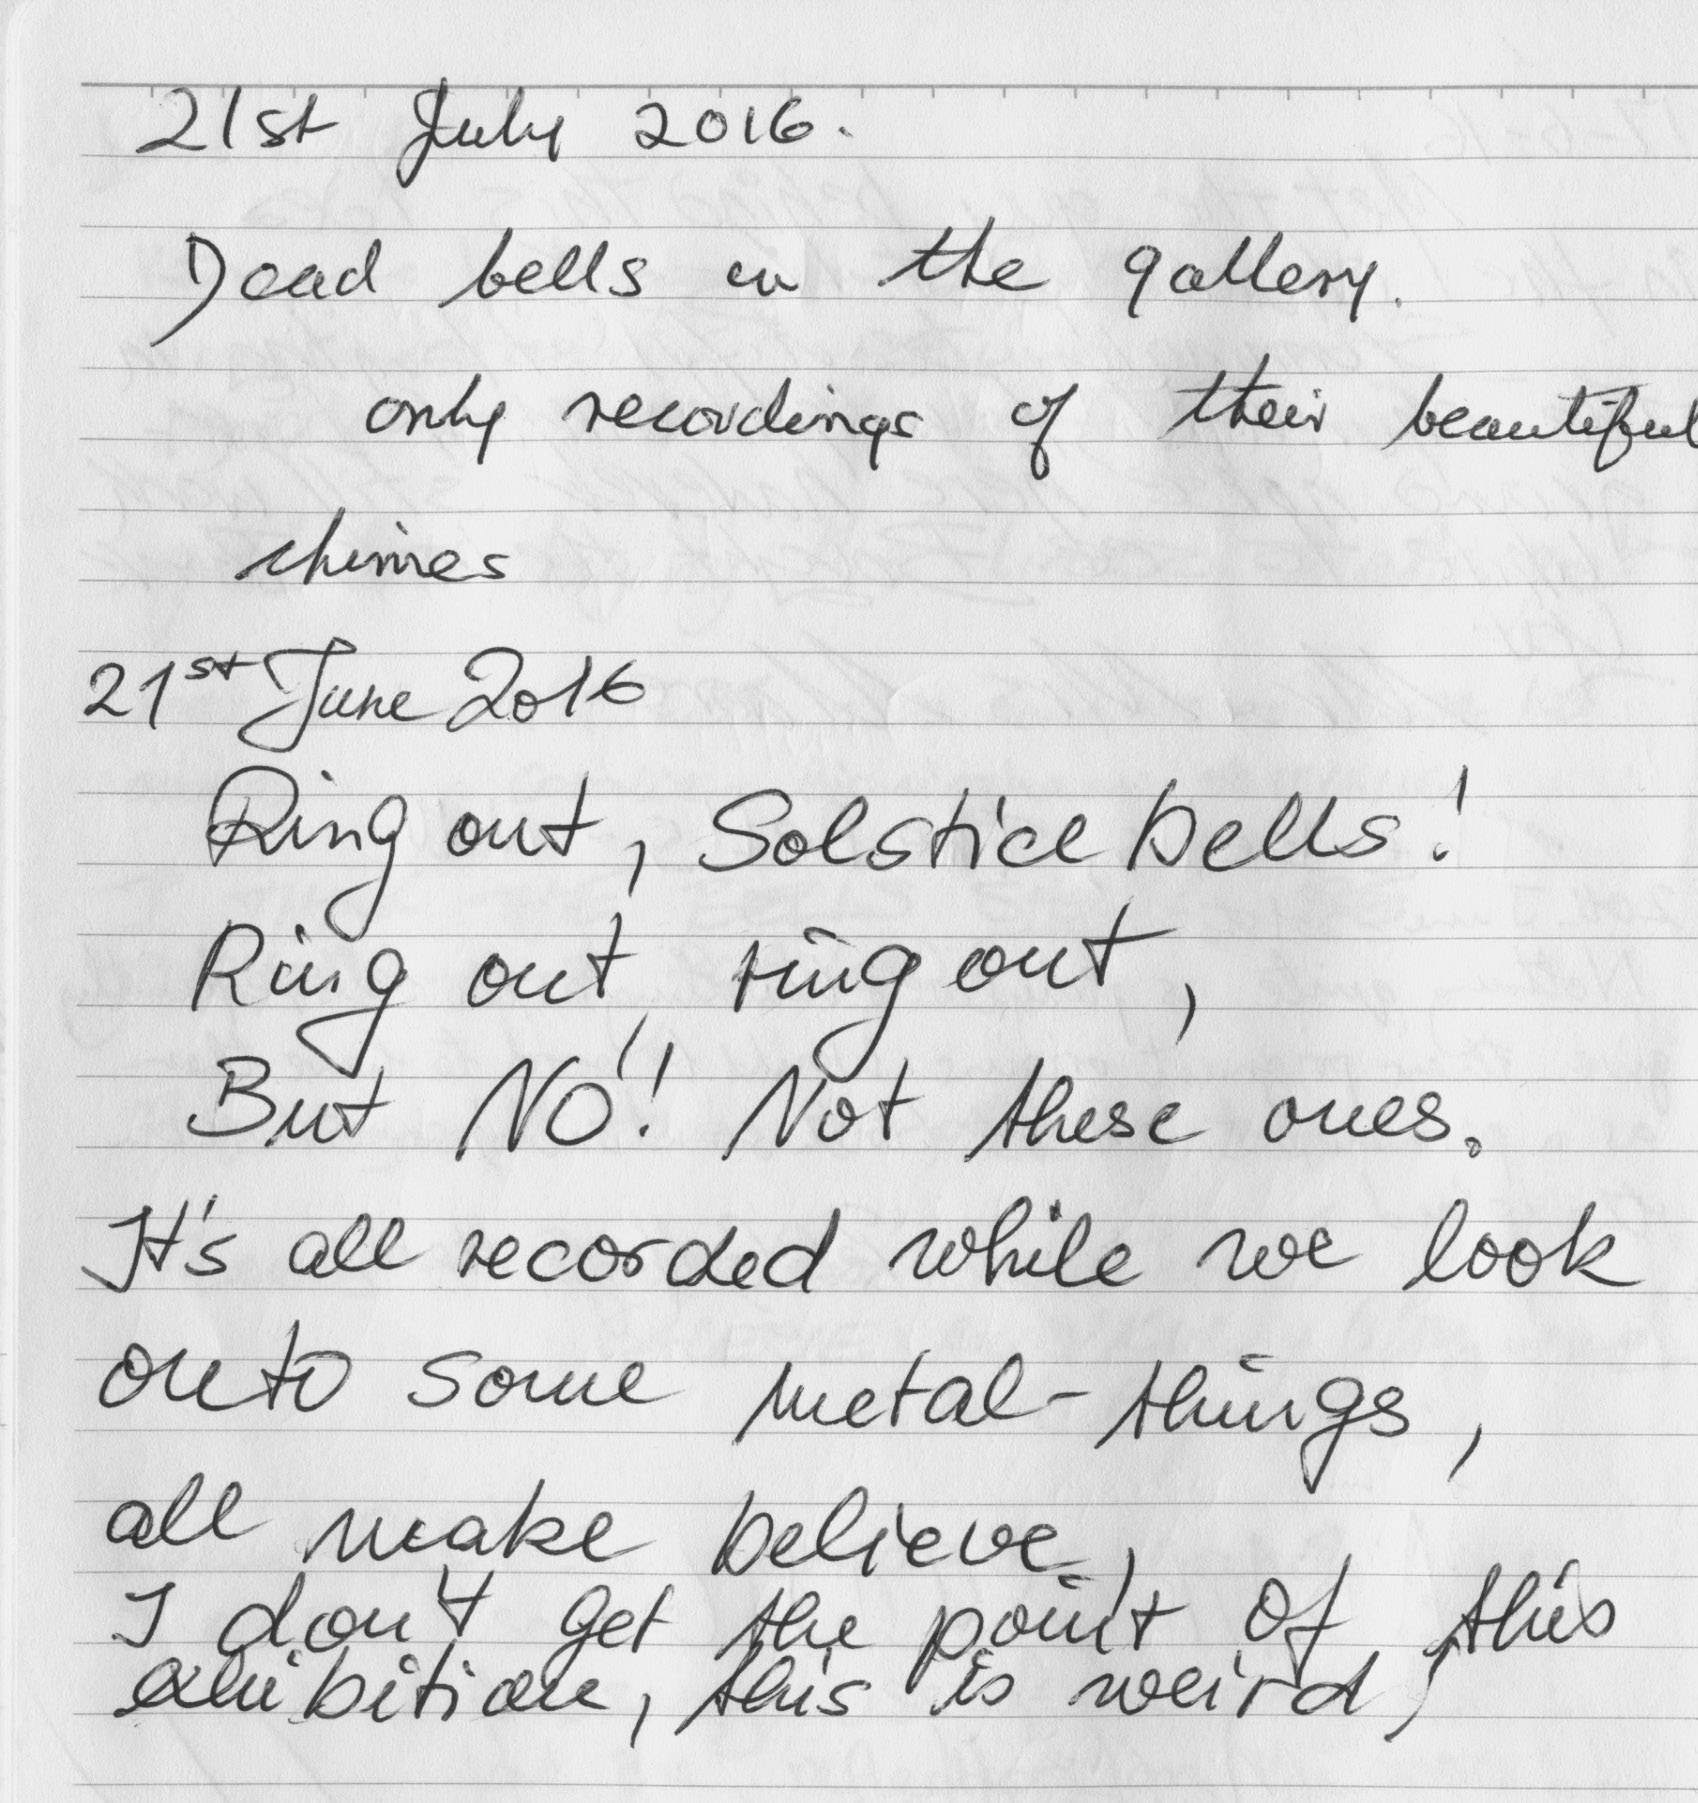 21st July 2016.
Dead bells in the gallery.
only recordings of their beautiful
chimes
21st June 2016
Ring out, Solstice bells!
Ring out, ring out,
But NO! Not these ones.
It's all recorded while we look
onto some metal-things,
all make believe,
I don't get the point of this
exhibition, this is weird,